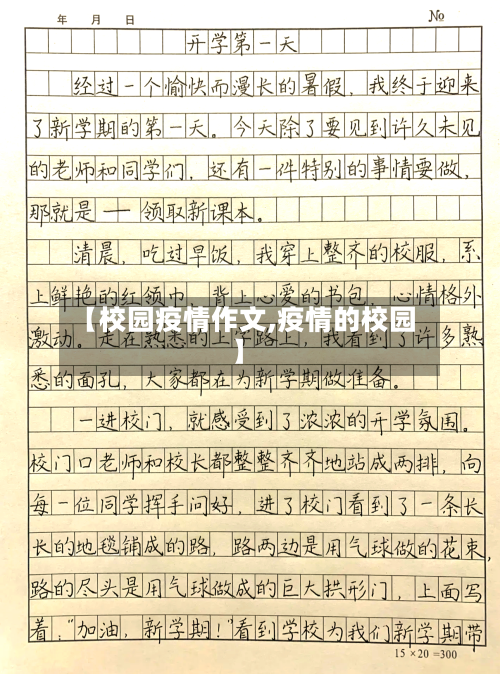 年 月 日 №
开学第一天
经过一个愉快而漫长的暑假，我终于迎来
了新学期的第一天。今天除了要见到许久未见
的老师和同学们，还有一件特别的事情要做，
那就是——领取新课本。
清晨，吃过早饭，我穿上整齐的校服，系
上鲜艳的红领巾，背上心爱的书包，心情格外
【校园疫情作文,疫情的校园
】
激动。走在熟悉的上学路上，我看到了许多熟
悉的面孔，大家都在为新学期做准备。
一进校门，就感受到了浓浓的开学氛围。
校门口老师和校长都整整齐齐地站成两排，向
每一位同学挥手问好，进了校门看到了一条长
长的地毯铺成的路，路两边是用气球做的花束，
路的尽头是用气球做成的巨大拱形门，上面写
着："加油，新学期！"看到学校为我们新学期带
15×20=300